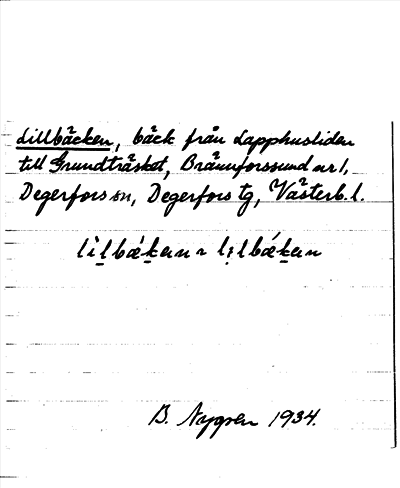 Lillbäcken, bäck från Lapphusliden
till Grundträsket, Brännforssund nr 1,
Degerfors sn, Degerfors tg, Västerb. l.
B. Nygren 1934.